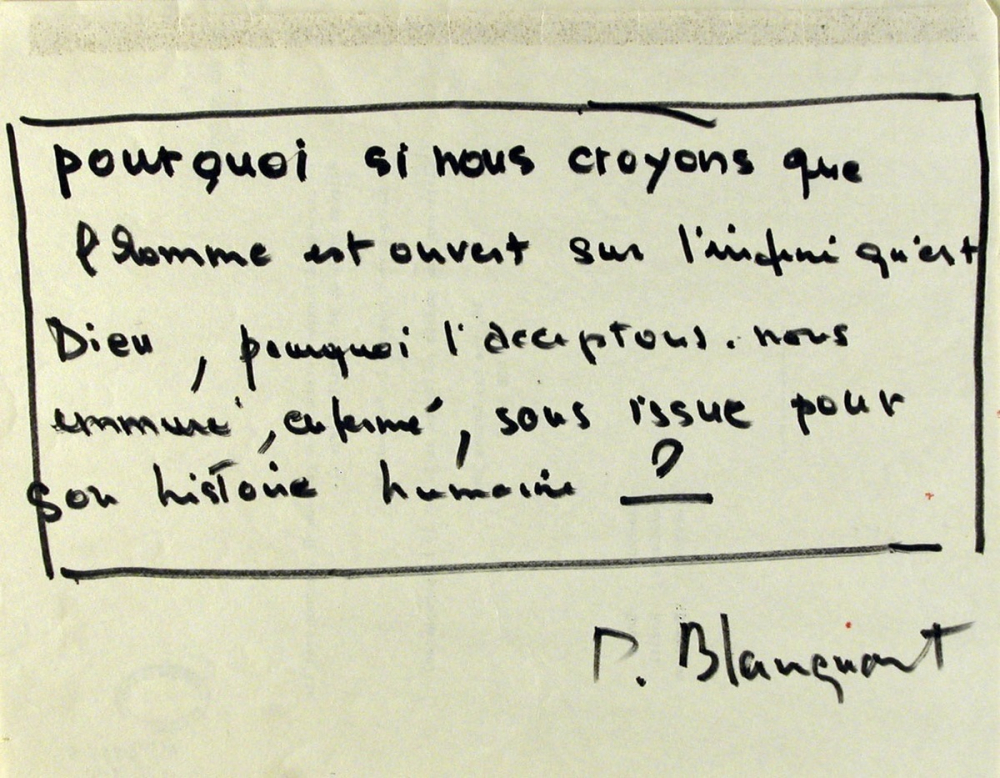 pourquoi si nous croyons que
l'homme est ouvert sur l'infini qu'est
Dieu, pourquoi l'acceptons-nous
emmuré, enfermé, sans issue pour
son histoire humaine ?
P. Blanquart